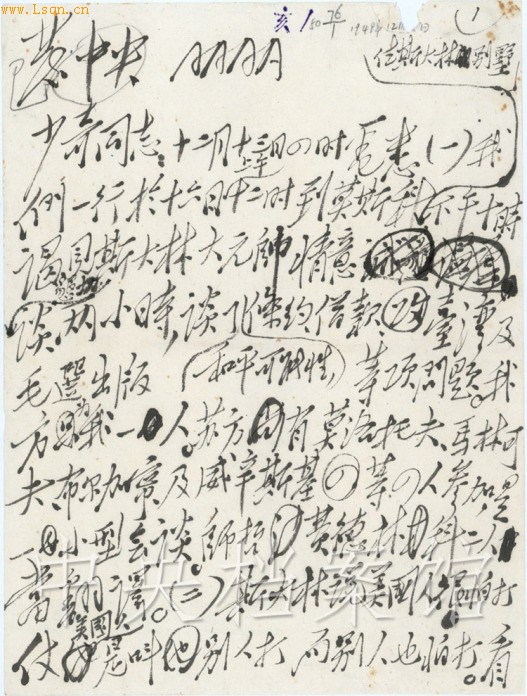 www.Lsqn.cn
亥
1949年12月18日
1
中央 AAAA
住斯大林別墅
少奇同志:十二月十三日四时电悉(一)我
们一行於十六日十二时到莫斯科下午十时
谒見斯大林大元帥情意恳切
谈两小時,谈及条约借款攻臺湾及
和平可能性
毛选出版等項問题。我
方只我一人。苏方有莫洛托夫、馬林可
夫、布尔加宁及威辛斯基等四人参加,是
一小型会谈。師哲費德林二人
當翻譯。(二)斯大林說美国人很怕打
仗美國是叫别人打而别人也怕打。看
中央档案馆